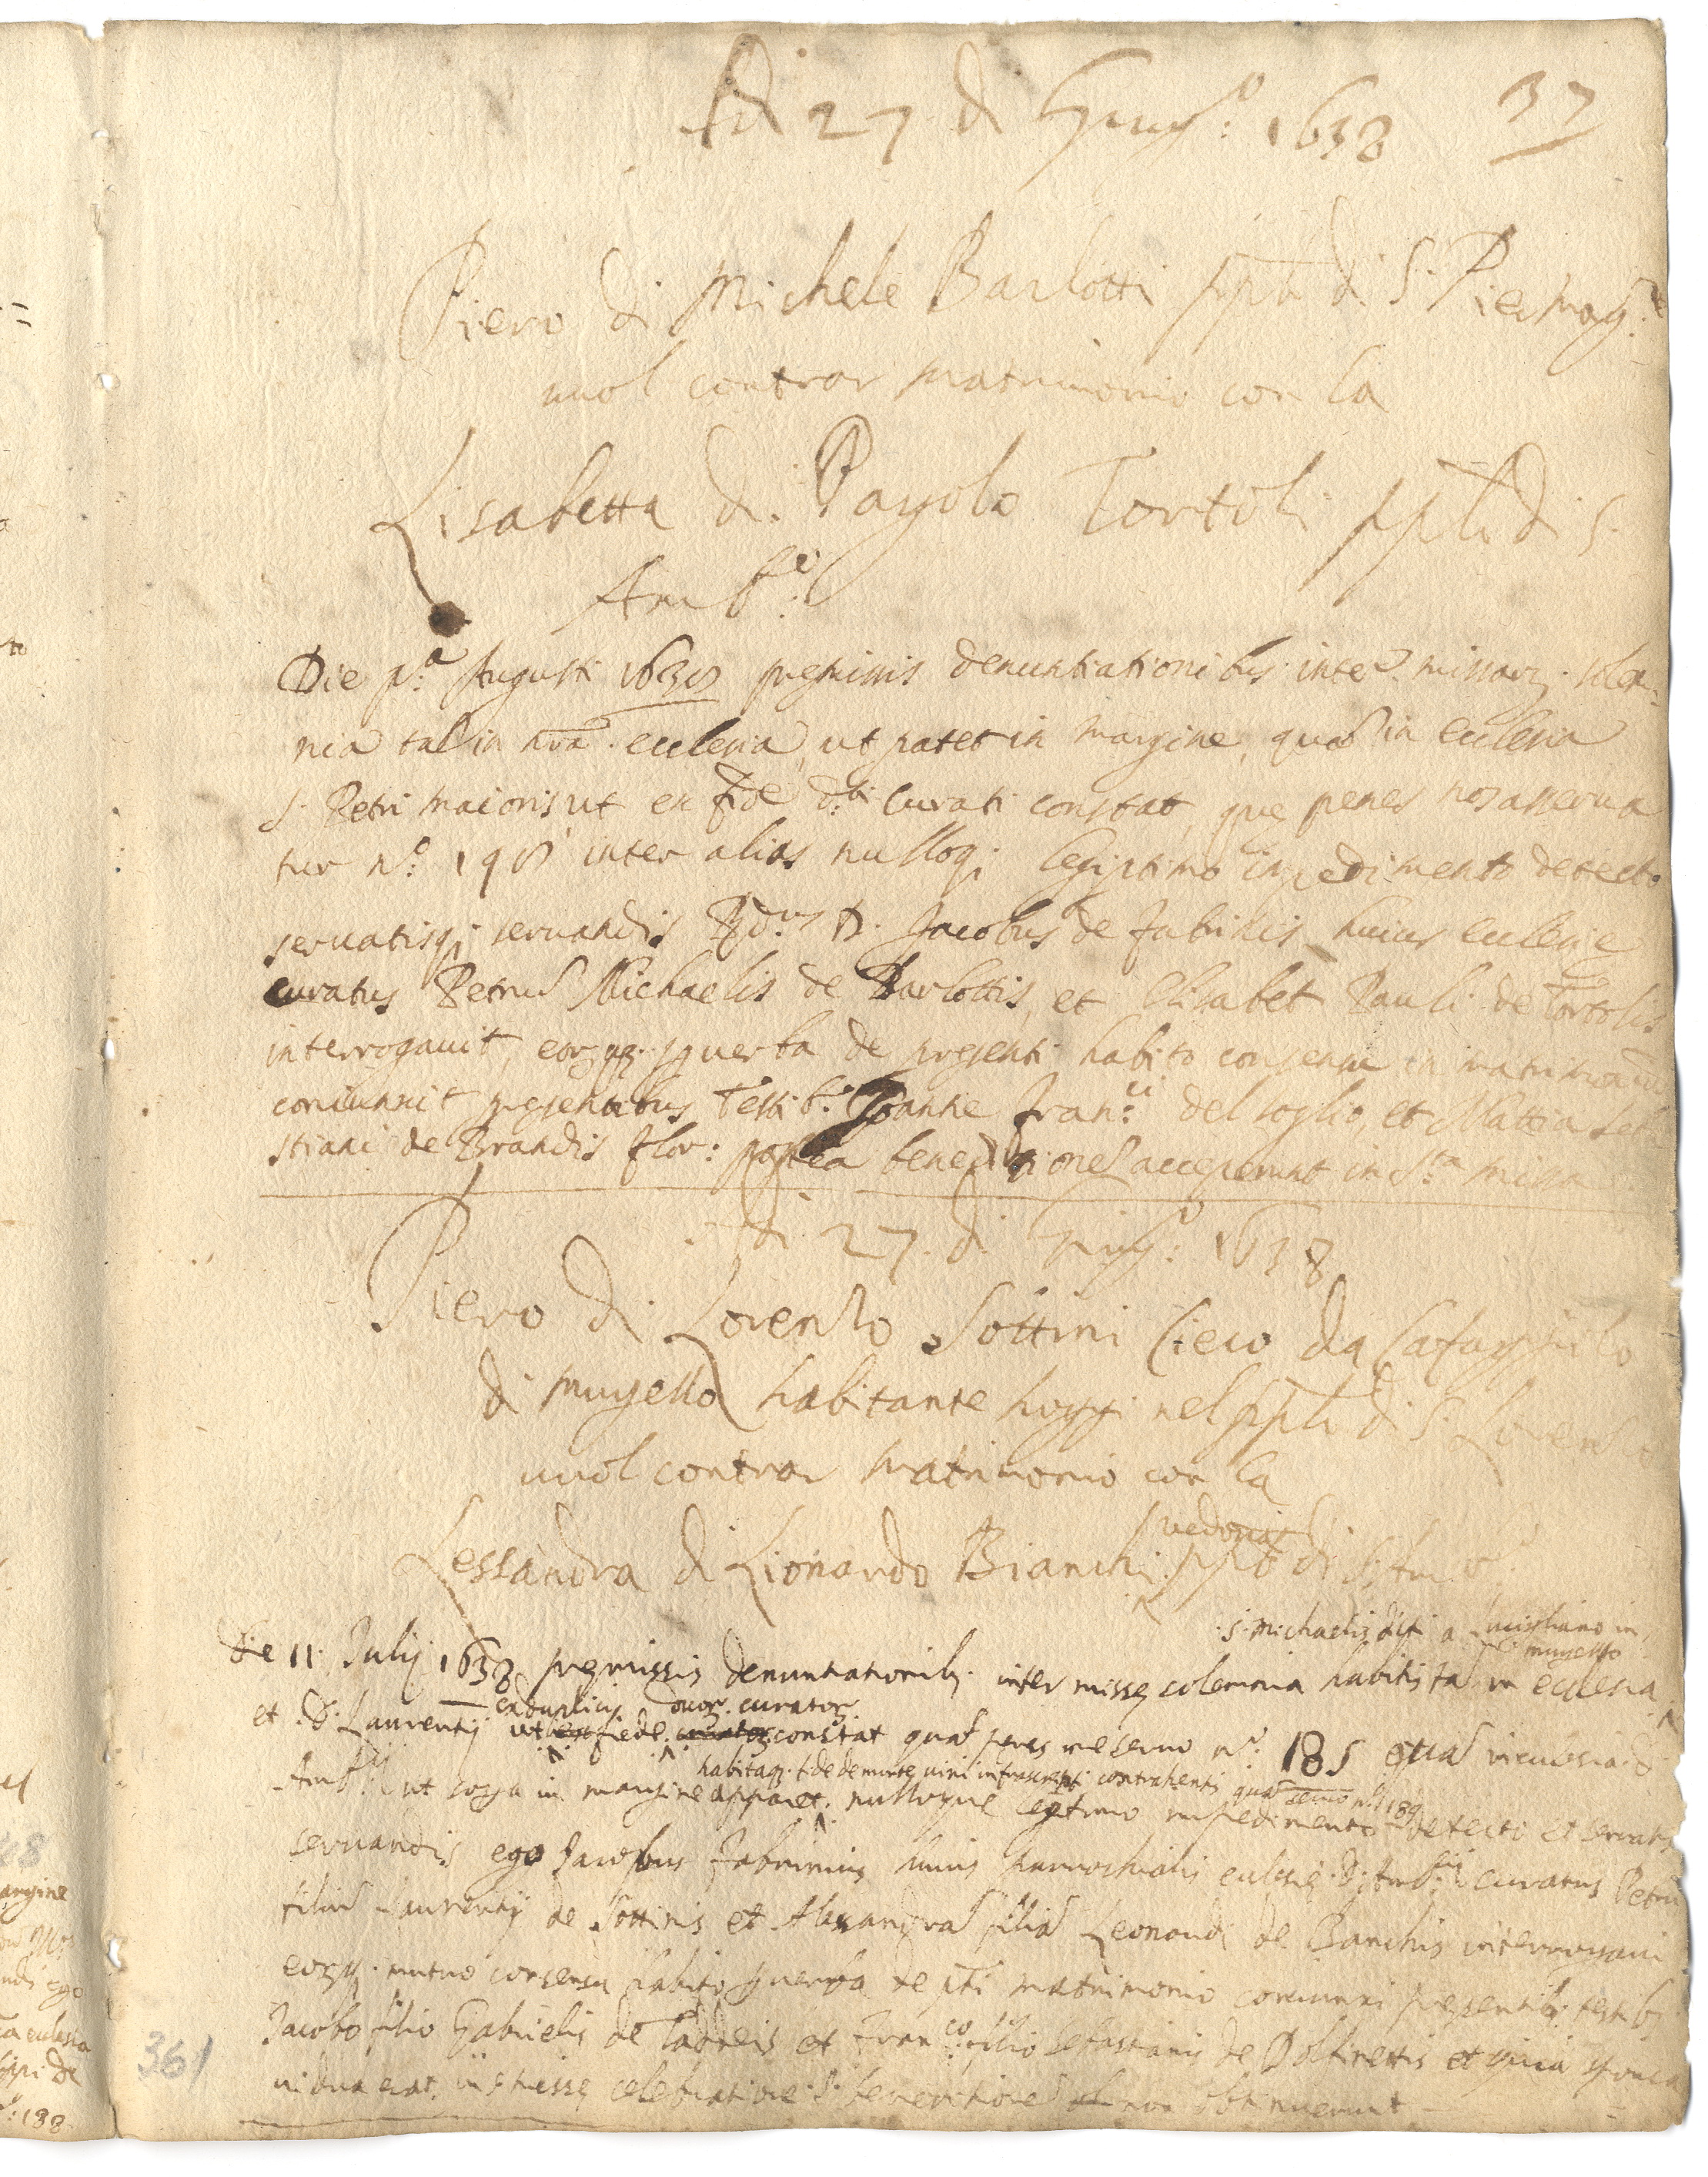 Adi 27 di Giug.o 1638 37
Piero di Michele Barlotti ppło di S. Pier mag.re
vuol contrar matrimonio con la
Lisabetta di Pagolo Tortoli ppło di S.
Amb.o
Die p.a Augusti 1638 premissis denuntiationibus inter missarz. solem-
nia tā in nrā. ecclesia, ut patet in margine, quā in ecclesia
S. Petri maioris ut ex fide d.ti Curati constat, que penes nos asserva
tur n.o 198 inter alias nulloq; legiptimo impedimento detecto
servatisq; servandis R.dus D. Jacobus de Fabrinis huius ecclesie
curatus Petrū Michaelis de Barlottis, et Elisabet Pauli de Tortolis
interrogavit, eorzqz. p verba de presenti habito consensu in matrimoniū
coniunxit presentibus Testib. Joanne Fran.ci del soglio, et Mattia Seba
stiani de Brandis flor: postea benedictiones acceperunt in S.ta missa
Adi 27 di Giug.o 1638
Piero di Lorenzo Sottini Cieco da Cafaggiolo
di mugello habitante hoggi nel ppło di S. Lorenzo
vuol contrar matrimonio con la
vedova
Lessandra di Lionardo Bianchi ppło di S. Amb.o
S. Michaelis dicti a in
mugello
Die 11 Julij 1638 premissis denuntiationib. inter misse solemnia habitis tā in ecclesia
ex duplicij duorz. curatorz.
et S. Laurentij ut fide constat quā penes me servo n.o 185 etiā S.
habitaqz. fide de morte viri infrascripti contrahentis quā servo n.o 189
Amb.ij ut sopra in margine apparet. nulloque legitimo impedimento detecto et servatis
servandis ego Jacobus Fabrinius huius parrochialis ecclesie S. Amb.ij curatus Petrū
filiū Laurentij de Sottinis et Alexandrā filiā Leonardi de Banchis interrogavi
eorzqz. mutuo consensu habito p verba de pñti matrimonio coniunxi presentib. testib.
Jacobo filio Gabrielis de Taddeis et Fran.co filio Sebastiani de et quia sponsa
vidua erat, in misse celebratione S. benedictiones non obtinuerunt
361